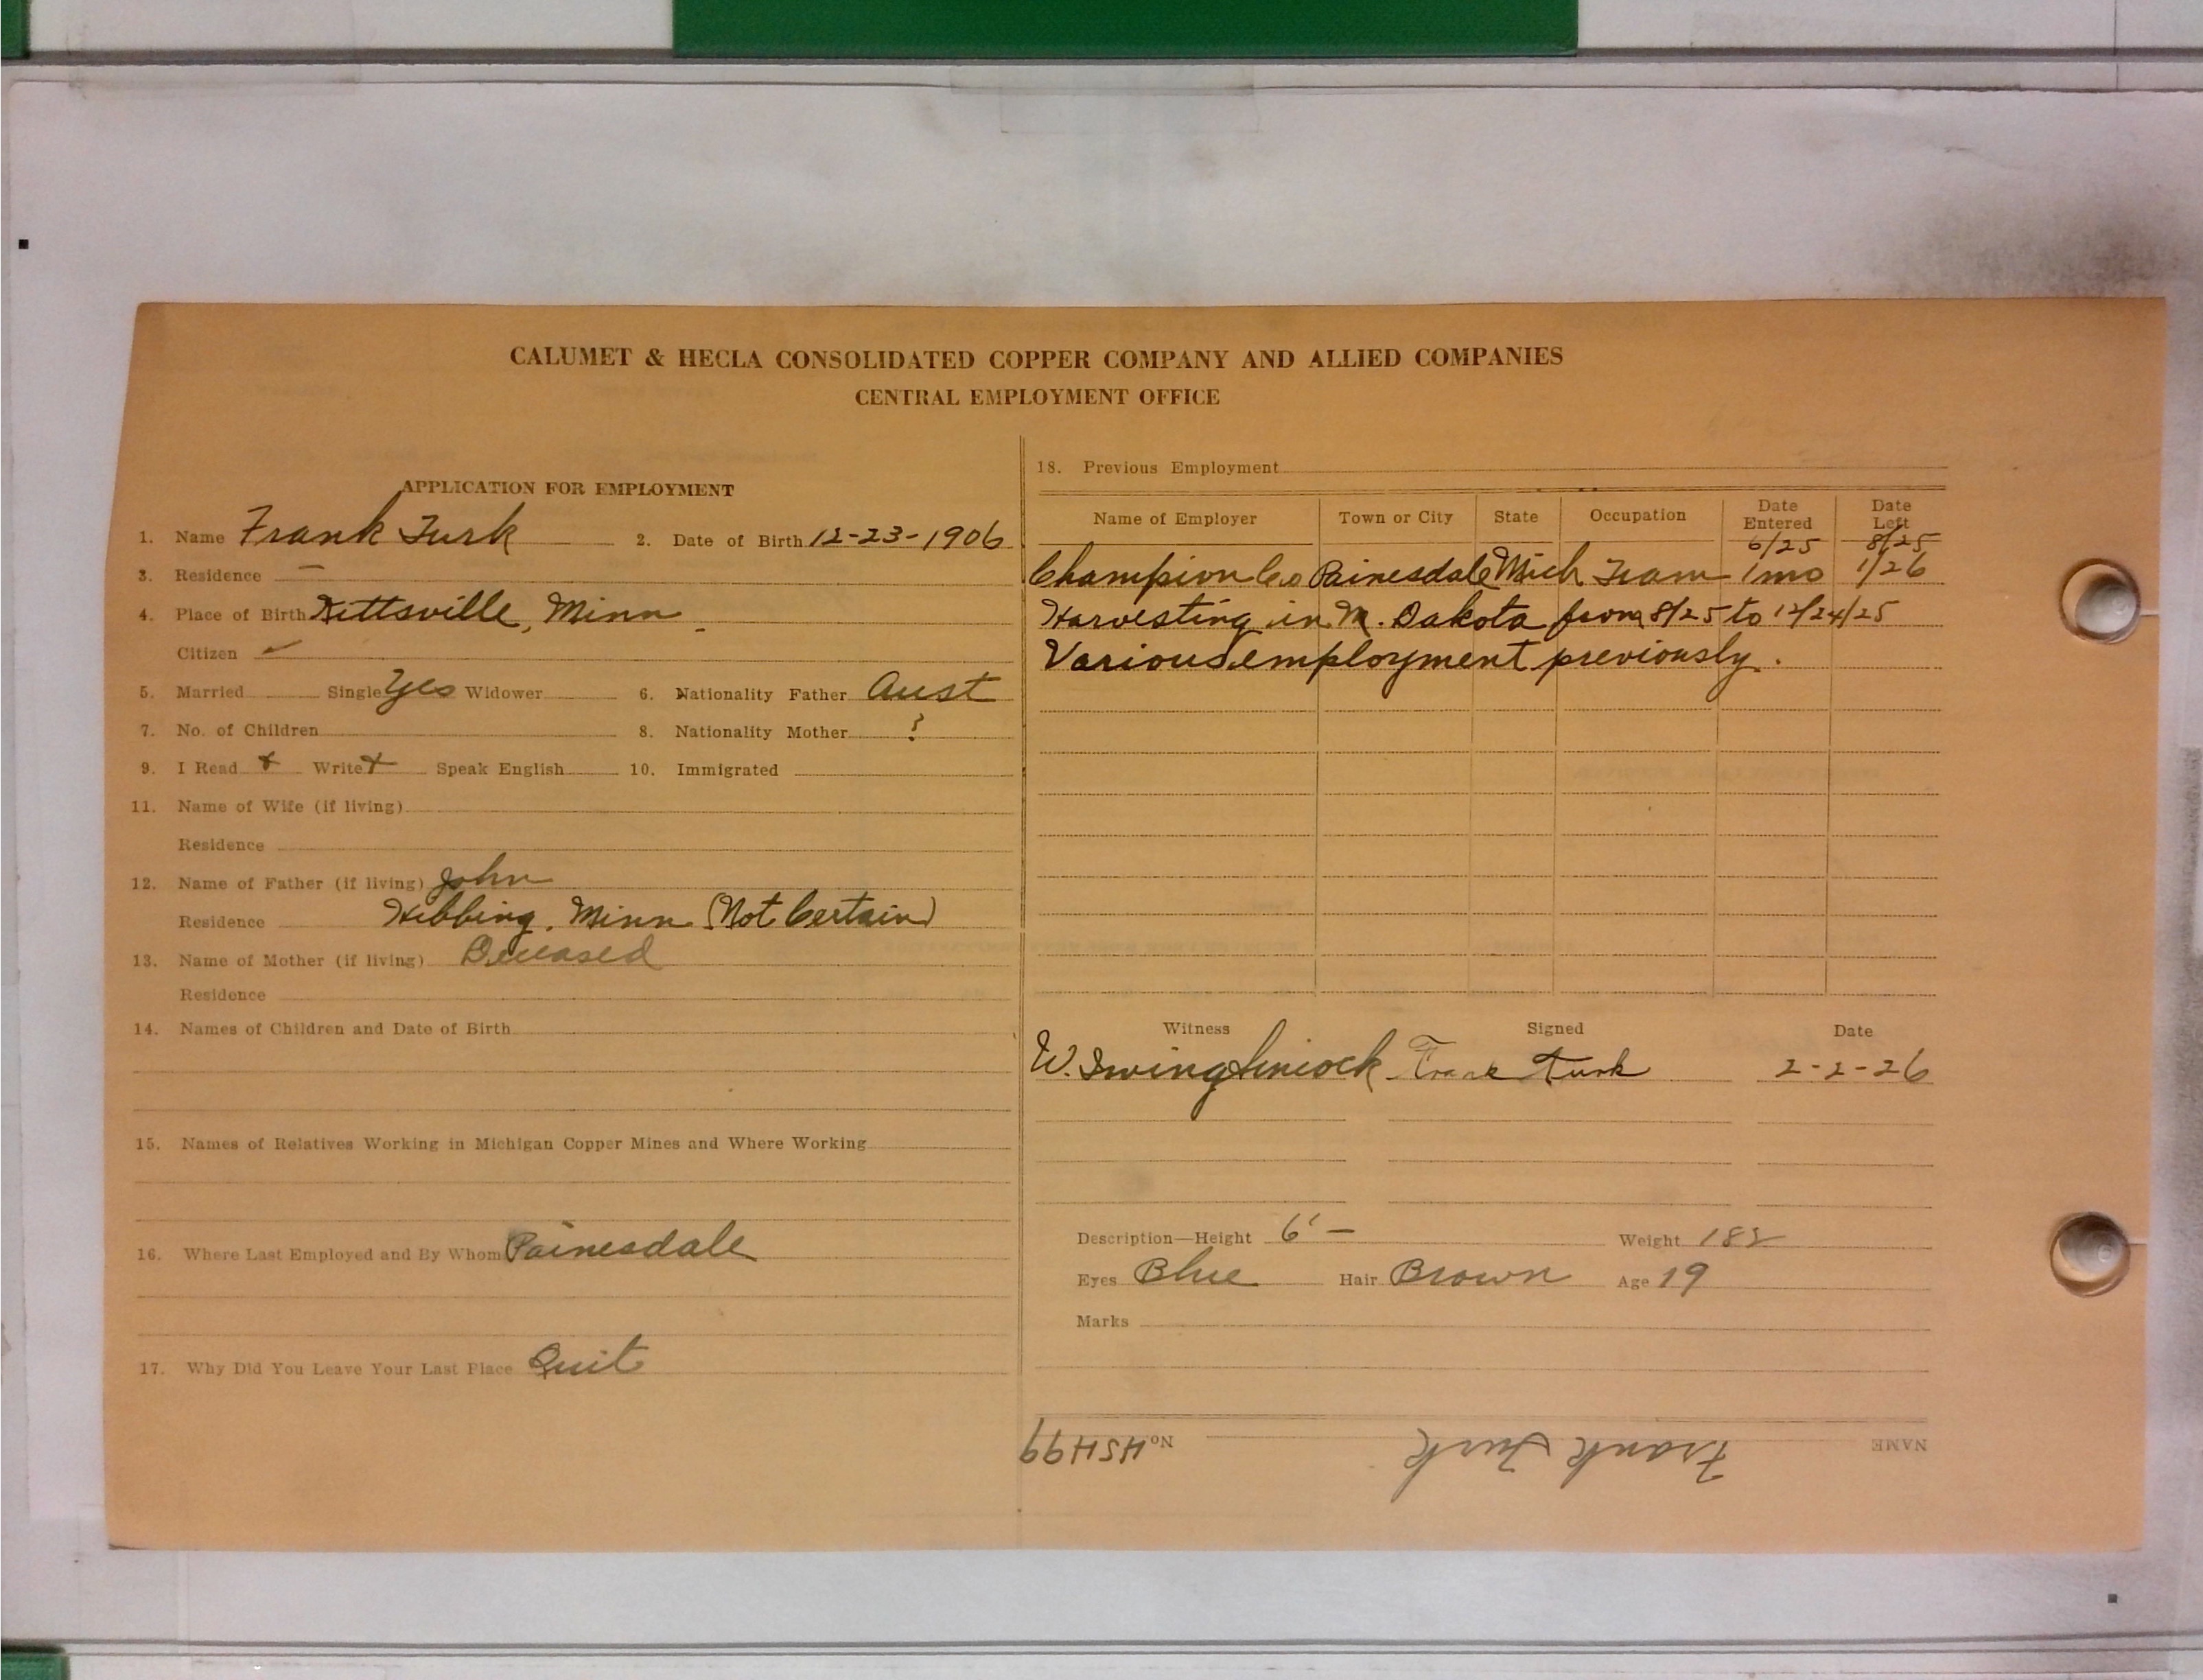 CALUMET & HECLA CONSOLIDATED COPPER COMPANY AND ALLIED COMPANIES
CENTRAL EMPLOYMENT OFFICE
APPLICATION FOR EMPLOYMENT
1. Name Frank Turk 2. Date of Birth 12-23-1906
3. Residence —
4. Place of Birth Kittsville, Minn
Citizen ✓
5. Married Single Yes Widower 6. Nationality Father Aust
7. No. of Children 8. Nationality Mother ?
9. I Read + Write + Speak English 10. Immigrated
11. Name of Wife (if living)
Residence
12. Name of Father (if living) John
Residence Hibbing, Minn (Not Certain)
13. Name of Mother (if living) Deceased
Residence
14. Names of Children and Date of Birth
15. Names of Relatives Working in Michigan Copper Mines and Where Working
16. Where Last Employed and By Whom Painesdale
17. Why Did You Leave Your Last Place Quit
18. Previous Employment
Name of Employer Town or City State Occupation Date Entered Date Left
6/25 8/25
Champion Co Painesdale Mich Tram 1 mo 1/26
Harvesting in N. Dakota from 8/25 to 12/24/25
Various employment previously.
Witness Signed Date
W. Frank Turk 2-2-26
Description—Height 6' — Weight 182
Eyes Blue Hair Brown Age 19
Marks
NAME Frank Turk No 45499